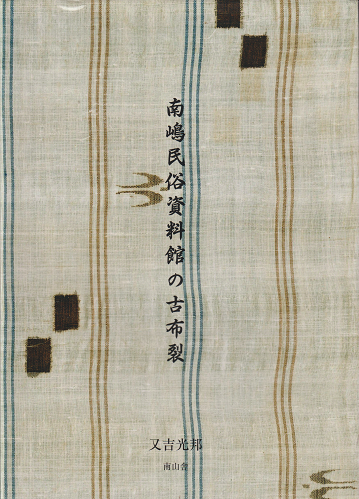 南嶋民俗資料館の古布裂
又吉光邦
南山舎